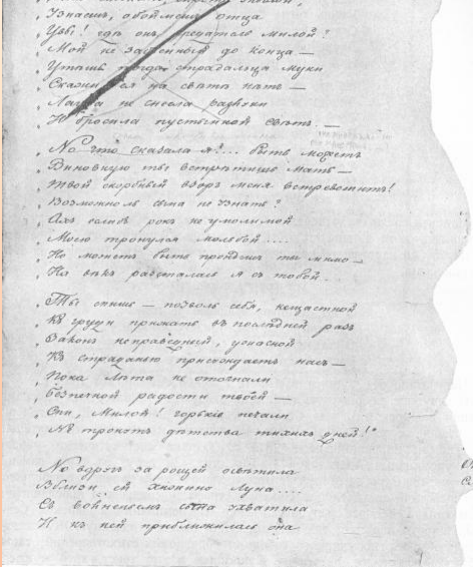 Узнаешь, обоймешь отца
Увы! гдѣ онъ, предатель милой!
Мой не забвенный до конца —
Утѣшь тогда страдальца муки
Скажи ея на свѣтѣ нѣтъ —
Лаура не снесла разлуки
И бросила пустынной свѣтъ. —

Но что сказала я!... быть можетъ
Виновную ты встрѣтишь мать —
Твой скорбный взоръ меня встревожитъ!
Возможноль сына не узнать?
Ахъ еслибъ рокъ неумолимой
Моею тронулся мольбой....
Но можетъ быть пройдешь ты мимо —
На вѣкъ разсталась я съ тобой.

Ты спишь — позволь себя, нещастной
Къ груди прижать въ послѣдней разъ
Законъ неправедный, ужасной
Къ страданью присуждаетъ насъ —
Пока лѣта не отогнали
Безпечной радости твоей —
Спи, милой! горькіе печали
Не тронутъ дѣтства тихихъ дней!"

Но вдругъ за рощей освѣтила
Вблизи ей хижину луна....
Съ волненьемъ сына ухватила
И къ ней приближилась она